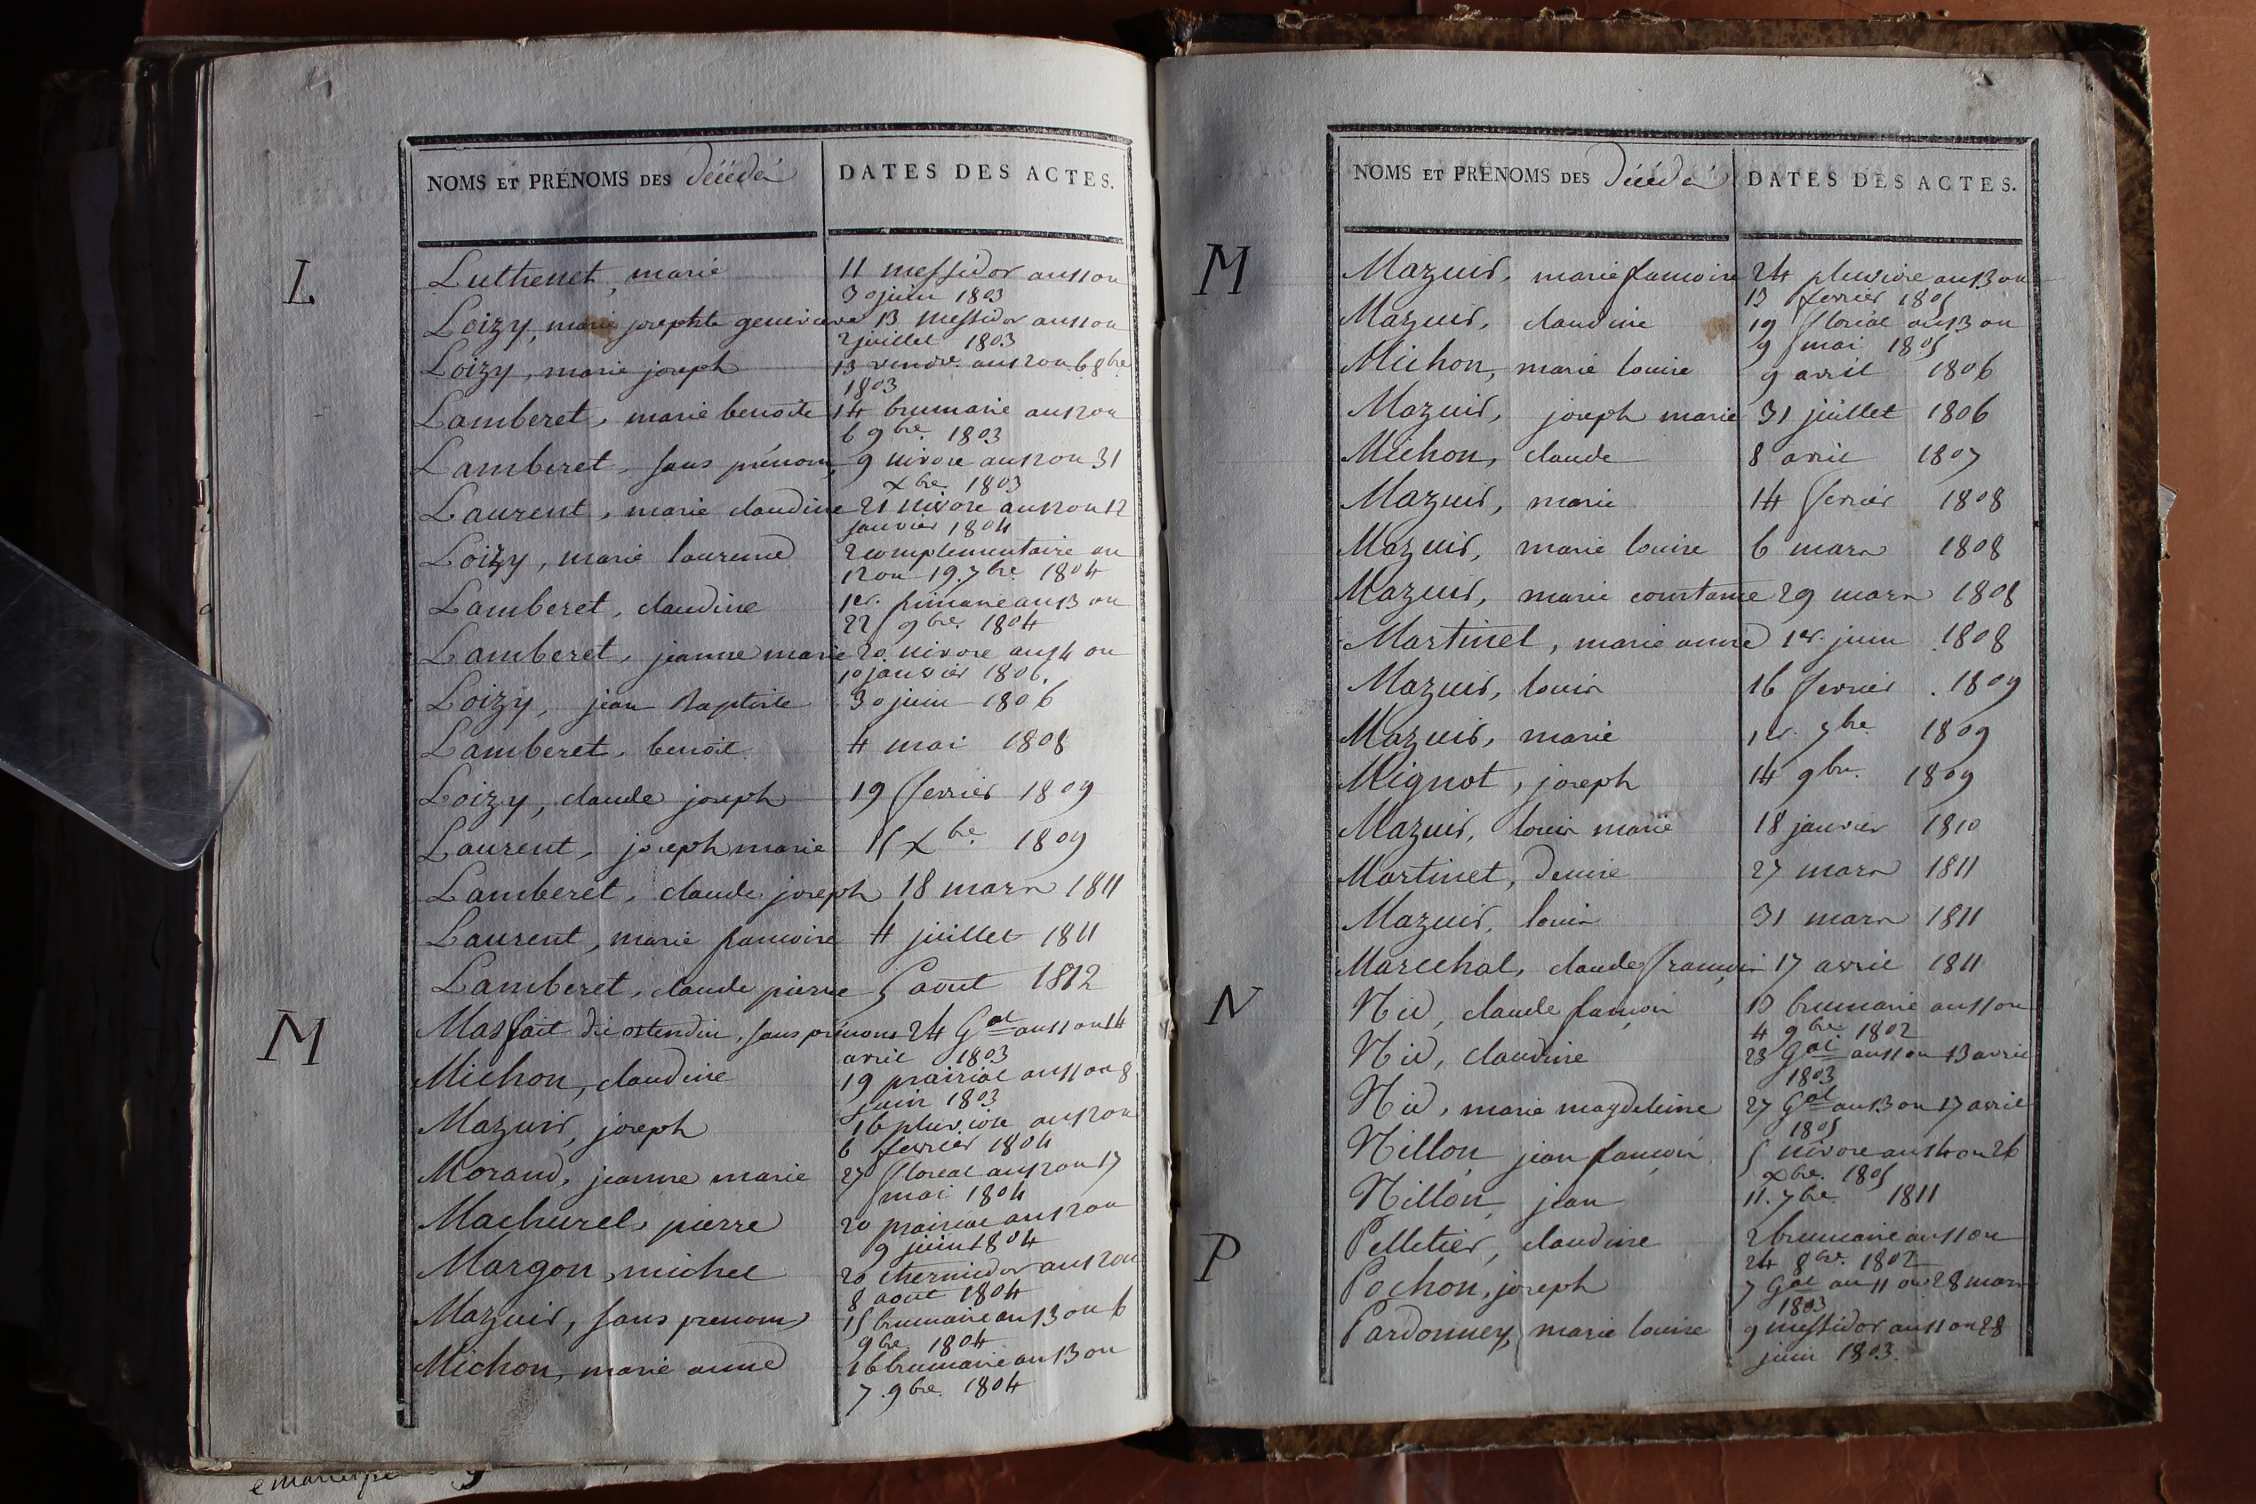 NOMS ET PRÉNOMS DES décédés DATES DES ACTES.
L
Luthenet, marie 11 messidor an 11 ou
30 juin 1803
Loizy, marie josephte genevieve 13 messidor an 11 ou
2 juillet 1803
Loizy, marie joseph 13 vendre. an 12 ou 6 8bre
1803
Lamberet, marie benoite 14 brumaire an 12 ou
6 9bre. 1803
Lamberet, sans prénom, 9 nivose an 12 ou 31
xbre. 1803
Laurent, marie claudine 21 nivose an 12 ou 12
janvier 1804
Loizy, marie laurence 2 complementaire an
12 ou 19. 7bre. 1804
Lamberet, claudine 1er. frimaire an 13 ou
22 9bre. 1804
Lamberet, jeanne marie 20 nivose an 14 ou
10 janvier 1806.
Loizy, jean Baptiste 30 juin 1806
Lamberet, benoit 4 mai 1808
Loizy, claude joseph 19 fevrier 1809
Laurent, joseph marie 15 xbre. 1809
Lamberet, claude joseph 18 mars 1811
Laurent, marie francoise 4 juillet 1811
Lamberet, claude pierre 5 aout 1812
M
Masfait dit , sans prénoms 24 Gal an 11 ou 14
avril 1803
Michon, claudine 19 prairial an 11 ou 8
juin 1803
Mazuir, joseph 16 pluviose an 12 ou
6 fevrier 1804
Morand, jeanne marie 27 floreal an 12 ou 17
mai 1804
Machurel, pierre 20 prairial an 12 ou
9 juin 1804
Margon, michel 20 thermidor an 12 ou
8 aout 1804
Mazuir, sans prenoms 15 brumaire an 13 ou 6
9bre 1804
Michon, marie anne 16 brumaire an 13 ou
7. 9bre. 1804
NOMS ET PRÉNOMS DES décédés DATES DES ACTES.
M
Mazuir, marie francoise 24 pluviose an 13 ou
13 fevrier 1805
Mazuir, claudine 19 floréal an 13 ou
9 mai 1805
Michon, marie louise 9 avril 1806
Mazuir, joseph marie 31 juillet 1806
Michon, claude 8 avril 1807
Mazuir, marie 14 fevrier 1808
Mazuir, marie louise 6 mars 1808
Mazuir, marie constance 29 mars 1808
Martinet, marie anne 1er. juin 1808
Mazuir, louis 16 fevrier. 1809
Mazuir, marie 1er. 7bre 1809
Mignot, joseph 14 9bre. 1809
Mazuir, louis marie 18 janvier 1810
Martinet, Denise 27 mars 1811
Mazuir, louis 31 mars 1811
Marechal, claude francois 17 avril 1811
N
Nid, claude francois 13 brumaire an 11 ou
4 9bre. 1802
Nid, claudine 23 Gal. an 11 ou 13 avril
1803
Nid, marie magdeleine 27 Gal an 13 ou 17 avril
1805
Nillon jean francois 5 nivose an 14 ou 26
xbre. 1805
Nillon, jean 11. 7bre 1811
P
Pelletier, claudine 2 brumaire an 11 ou
24 8bre. 1802
Pochon, joseph 7 Gal an 11 ou 28 mars
1803
Pardonney, marie louise 9 messidor an 11 ou 28
juin 1803.